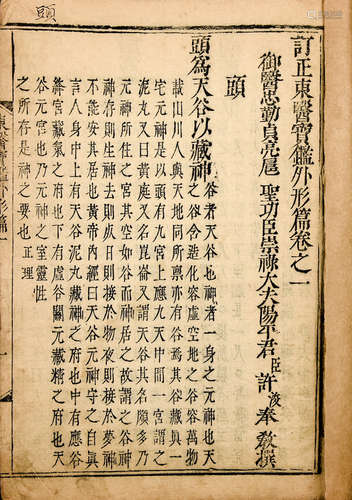 頭
訂正東醫寶鑑外形篇卷之一
御醫忠勤貞亮扈 聖功臣崇祿大夫陽平君臣許浚奉 教撰
頭
頭爲天谷以藏神 谷者天谷也神者一身之元神也天
之谷含造化容虛空地之谷容萬物
載山川人與天地同所禀亦有谷焉其谷藏眞一
宅元神是以頭有九宮上應九天中間一宮謂之
泥丸又曰黃庭又名崑崙又謂天谷其名頗多乃
元神所住之宮其空如谷而神居之故謂之谷神
神存則生神去則死日則接於物夜則接於夢神
不能安其居也黃帝內經曰天谷元神守之自眞
言人身中上有天谷泥丸藏神之府也中有應谷
絳宮藏氣之府也下有虛谷關元藏精之府也天
谷元宮也乃元神之室靈性
之所存是神之要也正理
東醫寶鑑外形篇一